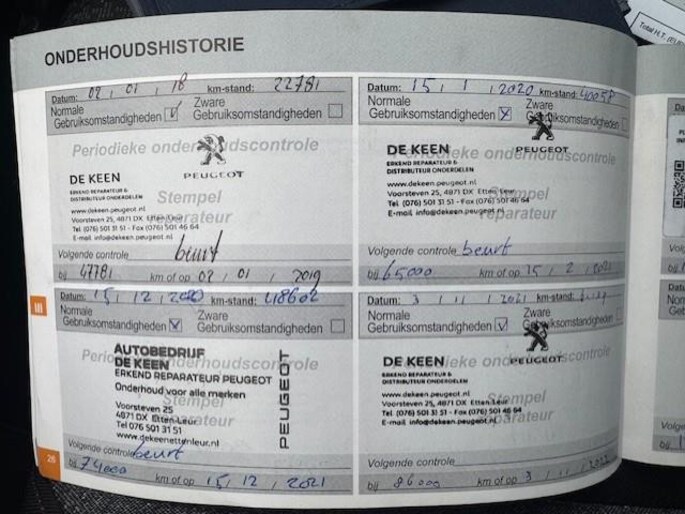 ONDERHOUDSHISTORIE
Datum: 02 / 01 / 18 km-stand: 22781
Normale Gebruiksomstandigheden
Zware Gebruiksomstandigheden
Periodieke onderhoudscontrole
PEUGEOT
DE KEEN
ERKEND REPARATEUR &
DISTRIBUTEUR ONDERDELEN
Stempel reparateur
www.dekeen.peugeot.nl
Voorsteven 25, 4871 DX Etten-Leur
Tel (076) 501 31 51 - Fax (076) 501 46 64
E-mail info@dekeen.peugeot.nl
Volgende controle beurt
bij 47781 km of op 02 / 01 / 2019
Datum: 15 / 1 / 2020 km-stand: 40058
Normale Gebruiksomstandigheden X
Zware Gebruiksomstandigheden
Periodieke onderhoudscontrole
PEUGEOT
DE KEEN
ERKEND REPARATEUR &
DISTRIBUTEUR ONDERDELEN
Stempel reparateur
www.dekeen.peugeot.nl
Voorsteven 25, 4871 DX Etten-Leur
Tel (076) 501 31 51 - Fax (076) 501 46 64
E-mail info@dekeen.peugeot.nl
Volgende controle beurt
bij 65000 km of op 15 / 2 / 2021
Datum: 15 / 12 / 2020 km-stand: 48602
Normale Gebruiksomstandigheden X
Zware Gebruiksomstandigheden
Periodieke onderhoudscontrole
AUTOBEDRIJF
DE KEEN
ERKEND REPARATEUR PEUGEOT
Onderhoud voor alle merken
PEUGEOT
Stempel reparateur
Voorsteven 25
4871 DX Etten-Leur
Tel 076 501 31 51
www.dekeenettenleur.nl
Volgende controle beurt
bij 74000 km of op 15 / 12 / 2021
Datum: 3 / 11 / 2021 km-stand:
Normale Gebruiksomstandigheden
Zware Gebruiksomstandigheden
Periodieke onderhoudscontrole
PEUGEOT
DE KEEN
ERKEND REPARATEUR &
DISTRIBUTEUR ONDERDELEN
Stempel reparateur
www.dekeen.peugeot.nl
Voorsteven 25, 4871 DX Etten-Leur
Tel (076) 501 31 51 - Fax (076) 501 46 64
E-mail info@dekeen.peugeot.nl
Volgende controle
bij 86000 km of op 3 / 11 /
26
Total H.T.